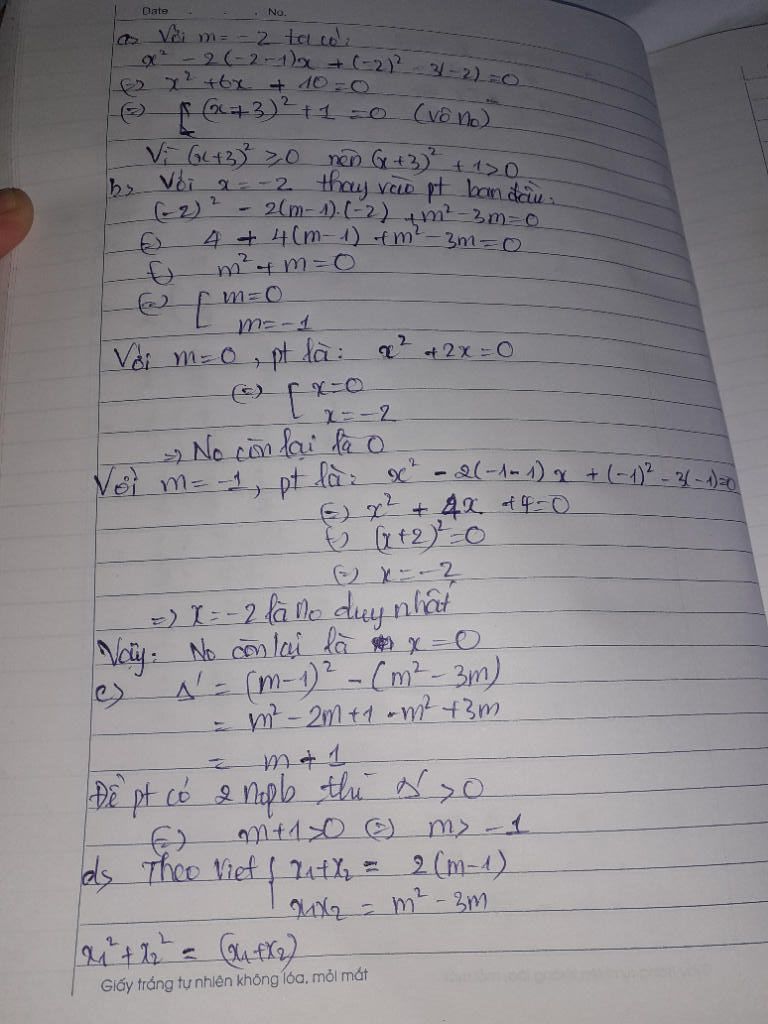 Date . . . No.
a> Với m = -2 ta có:
x² - 2(-2-1)x + (-2)² - 3(-2) = 0
(=) x² + 6x + 10 = 0
(=) [ (x+3)² + 1 = 0 (vô no)
Vì (x+3)² ≥ 0 nên (x+3)² + 1 > 0
b> Với x = -2 thay vào pt ban đầu:
(-2)² - 2(m-1).(-2) + m² - 3m = 0
(=) 4 + 4(m-1) + m² - 3m = 0
(=) m² + m = 0
(=) [ m = 0
m = -1
Với m = 0, pt là: x² + 2x = 0
(=) [ x = 0
x = -2
=> No còn lại là 0
Với m = -1, pt là: x² - 2(-1-1)x + (-1)² - 3(-1) = 0
(=) x² + 4x + 4 = 0
(=) (x+2)² = 0
(=) x = -2
=> x = -2 là no duy nhất
Vậy: No còn lại là x = 0
c) Δ' = (m-1)² - (m² - 3m)
= m² - 2m + 1 - m² + 3m
= m + 1
Để pt có 2 nopb thì Δ' > 0
(=) m + 1 > 0 (=) m > -1
d> Theo Viet { x₁ + x₂ = 2(m-1)
x₁x₂ = m² - 3m
x₁² + x₂² = (x₁ + x₂)
Giấy trắng tự nhiên không lóa, mỏi mắt